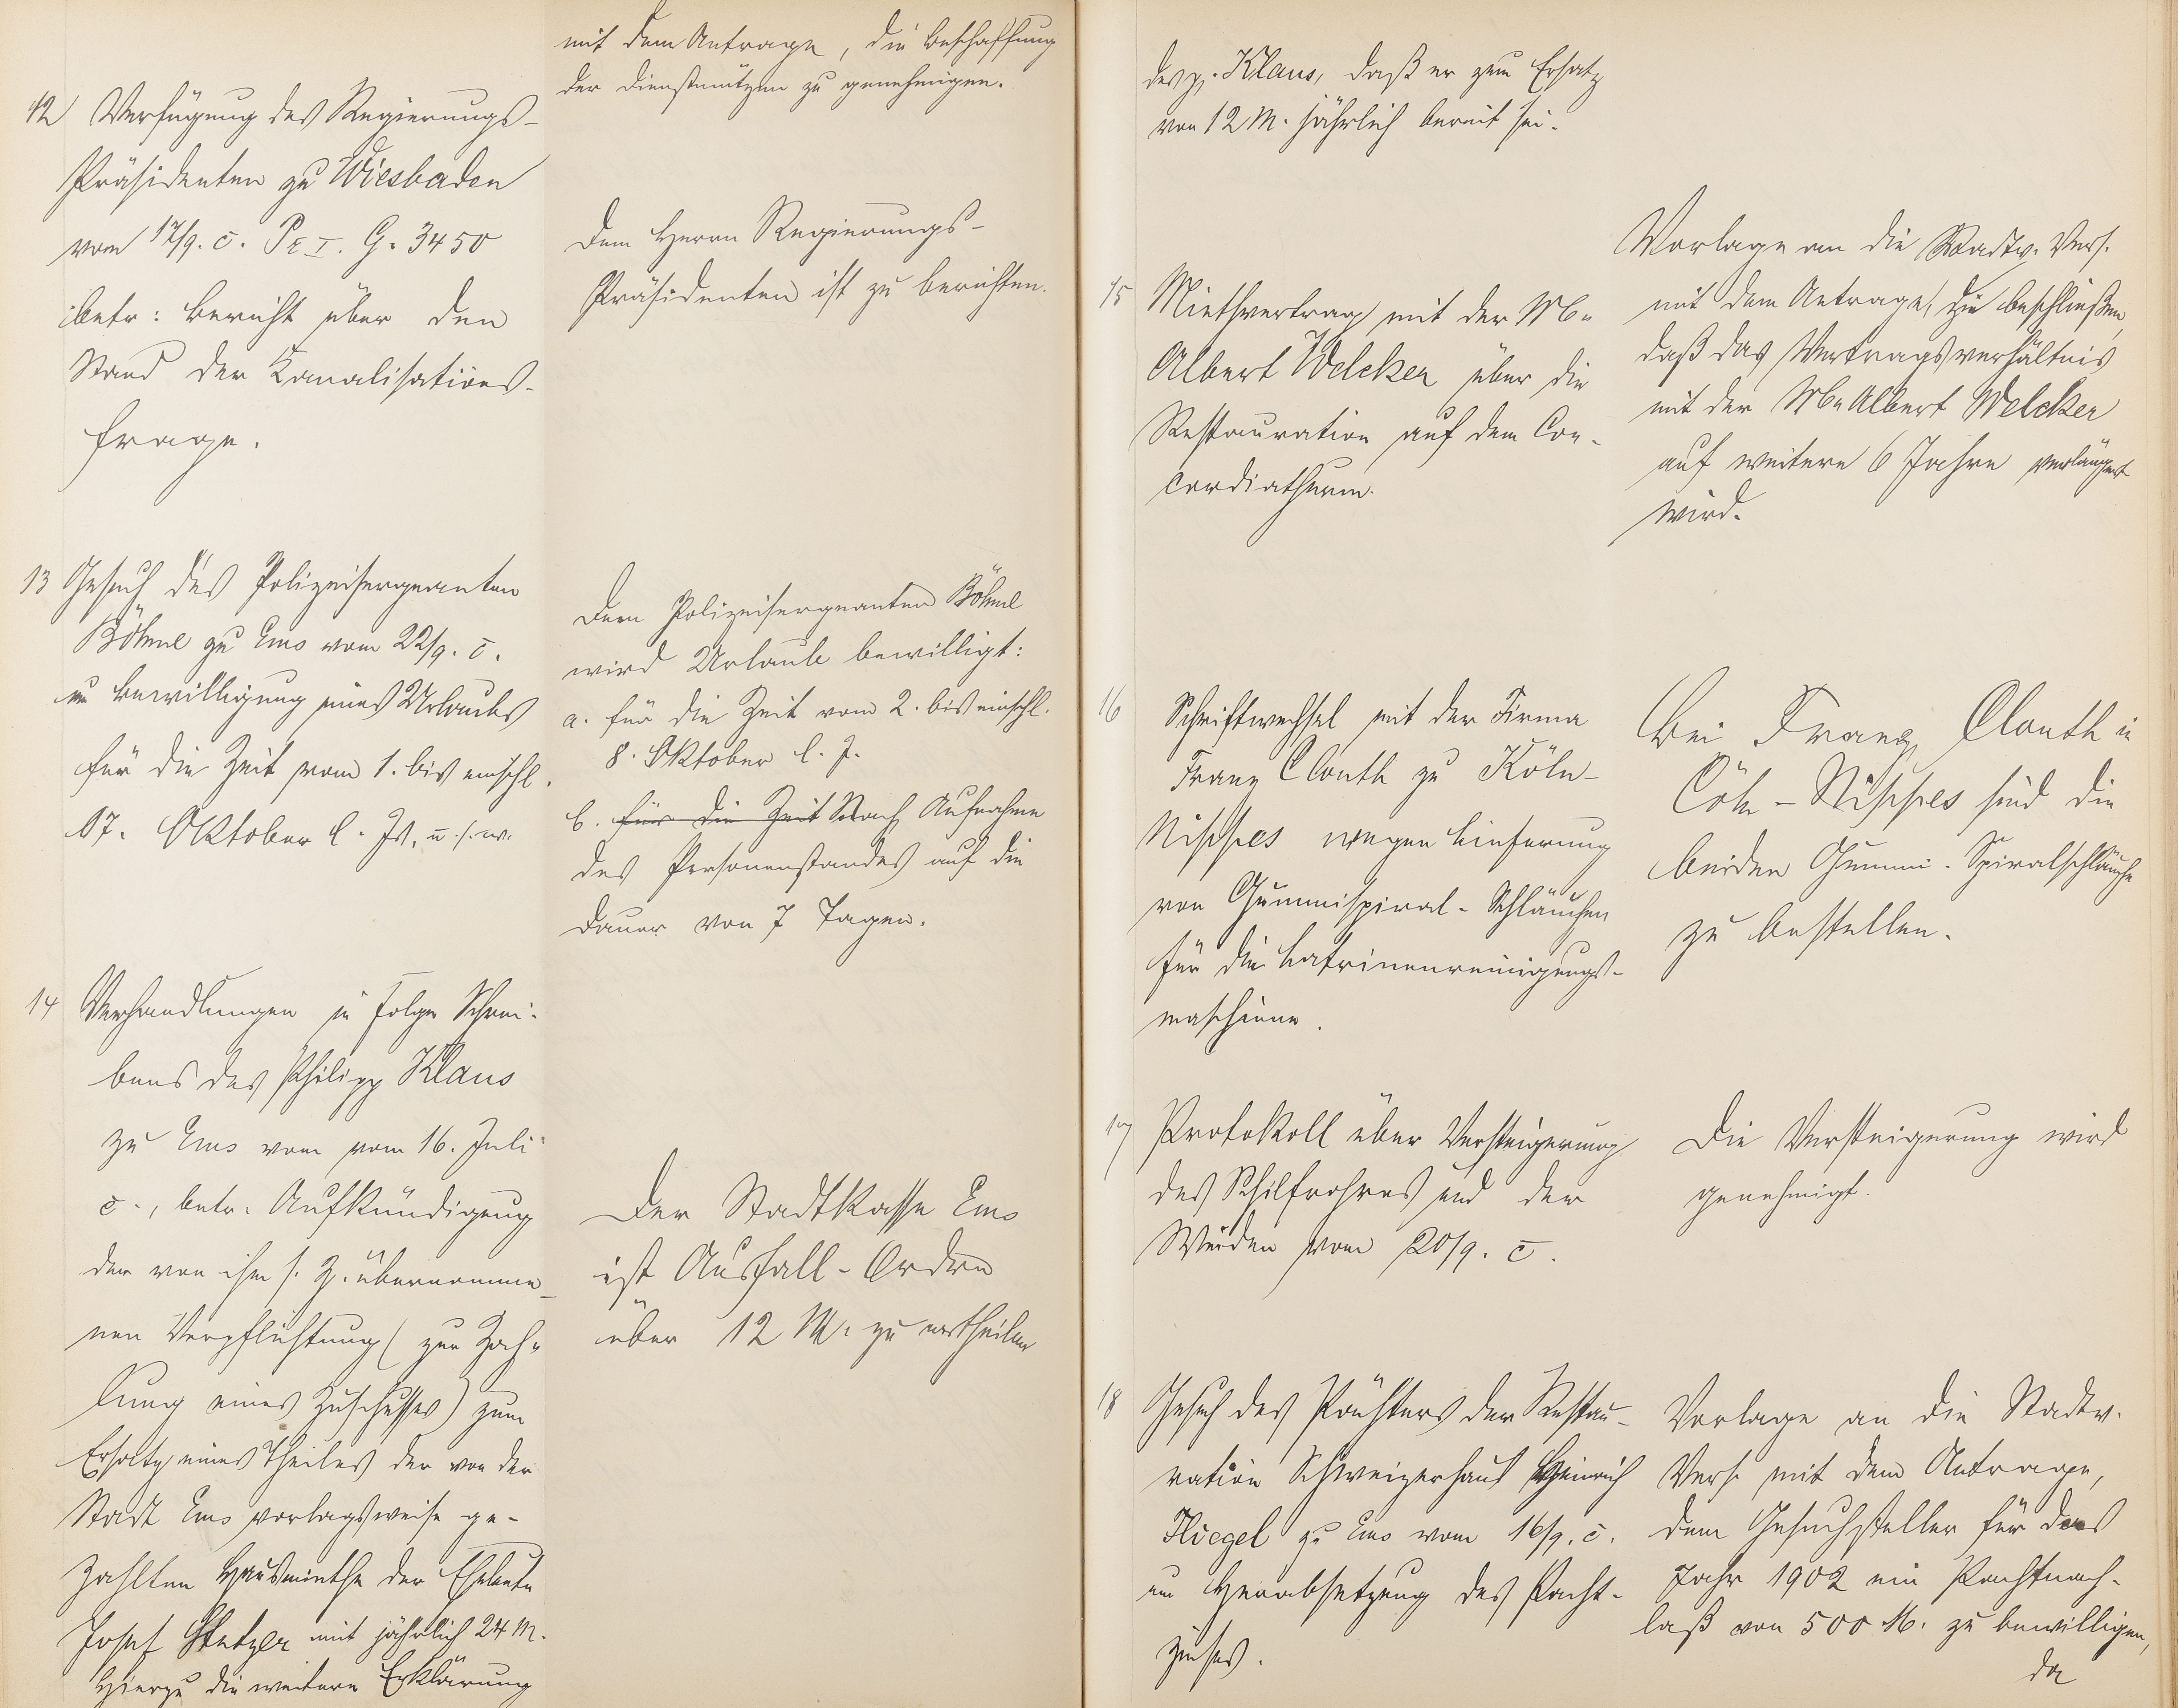 mit dem Antrage, die Beschaffung
der Dienstmützen zu genehmigen.
12 Verfügung des Regierungs-
Präsidenten zu Wiesbaden
vom 17/9. c. Pr. I. G. 3450
betr: Bericht über den
Stand der Kanalisations-
frage.
Dem Herrn Regierungs-
Präsidenten ist zu berichten.
13 Gesuch des Polizeisergeanten
Böhme zu Ems vom 22/9. c.
um Bewilligung eines Urlaubs
für die Zeit vom 1. bis einschl.
17. Oktober l. Js. u. s. w.
Dem Polizeisergeanten Böhme
wird Urlaub bewilligt:
a. für die Zeit vom 2. bis einschl.
8. Oktober l. J.
b. für die Zeit Nach Aufnahme
des Personenstandes auf die
Dauer von 7 Tagen.
14 Verhandlungen in Folge Schrei-
bens des Philipp Klaus
zu Ems vom vom 16. Juli
c., betr. Aufkündigung
der von ihm s. Z. übernomme-
nen Verpflichtung (zur Zah-
lung eines Zuschusses) zum
Ersatz eines Theiles der von der
Stadt Ems vorlagsweise ge-
zahlten Hausmiethe der Eheleute
Josef mit jährlich 24 M.
Hierzu die weitere Erklärung
Der Stadtkasse Ems
ist Ausfall-Ordre
über 12 M. zu ertheilen
des p. Klaus, daß er zum Ersatz
von 12 M. jährlich bereit sei.
15 Miethvertrag mit der Ww.
Albert Welcker über die
Restauration auf dem Con-
cordiathurm.
Vorlage an die Stadtv. Vers.
mit dem Antrage, zu beschließen,
daß das Vertragsverhältnis
mit der Ww. Albert Welcker
auf weitere 6 Jahre verlängert
wird.
16 Schriftwechsel mit der Firma
Franz Clouth zu Köln-
Nippes wegen Lieferung
von Gummispiral-Schläuchen
für die Latrinenreinigungs-
maschine.
Bei Franz Clouth in
Cöln-Nippes sind die
beiden Gummi-Spiralschläuche
zu bestellen.
17 Protokoll über Versteigerung
des Schilfrohres und der
Weiden vom 20/9. c.
Die Versteigerung wird
genehmigt.
18 Gesuch des Pächters der Restau-
ration Schweizerhaus Heinrich
Fliegel zu Ems vom 16/9. c.
um Herabsetzung des Pacht-
zinses.
Vorlage an die Stadtv.
Vers. mit dem Antrage,
dem Gesuchsteller für das
Jahr 1902 ein Pachtnach-
laß von 500 M. zu bewilligen,
da